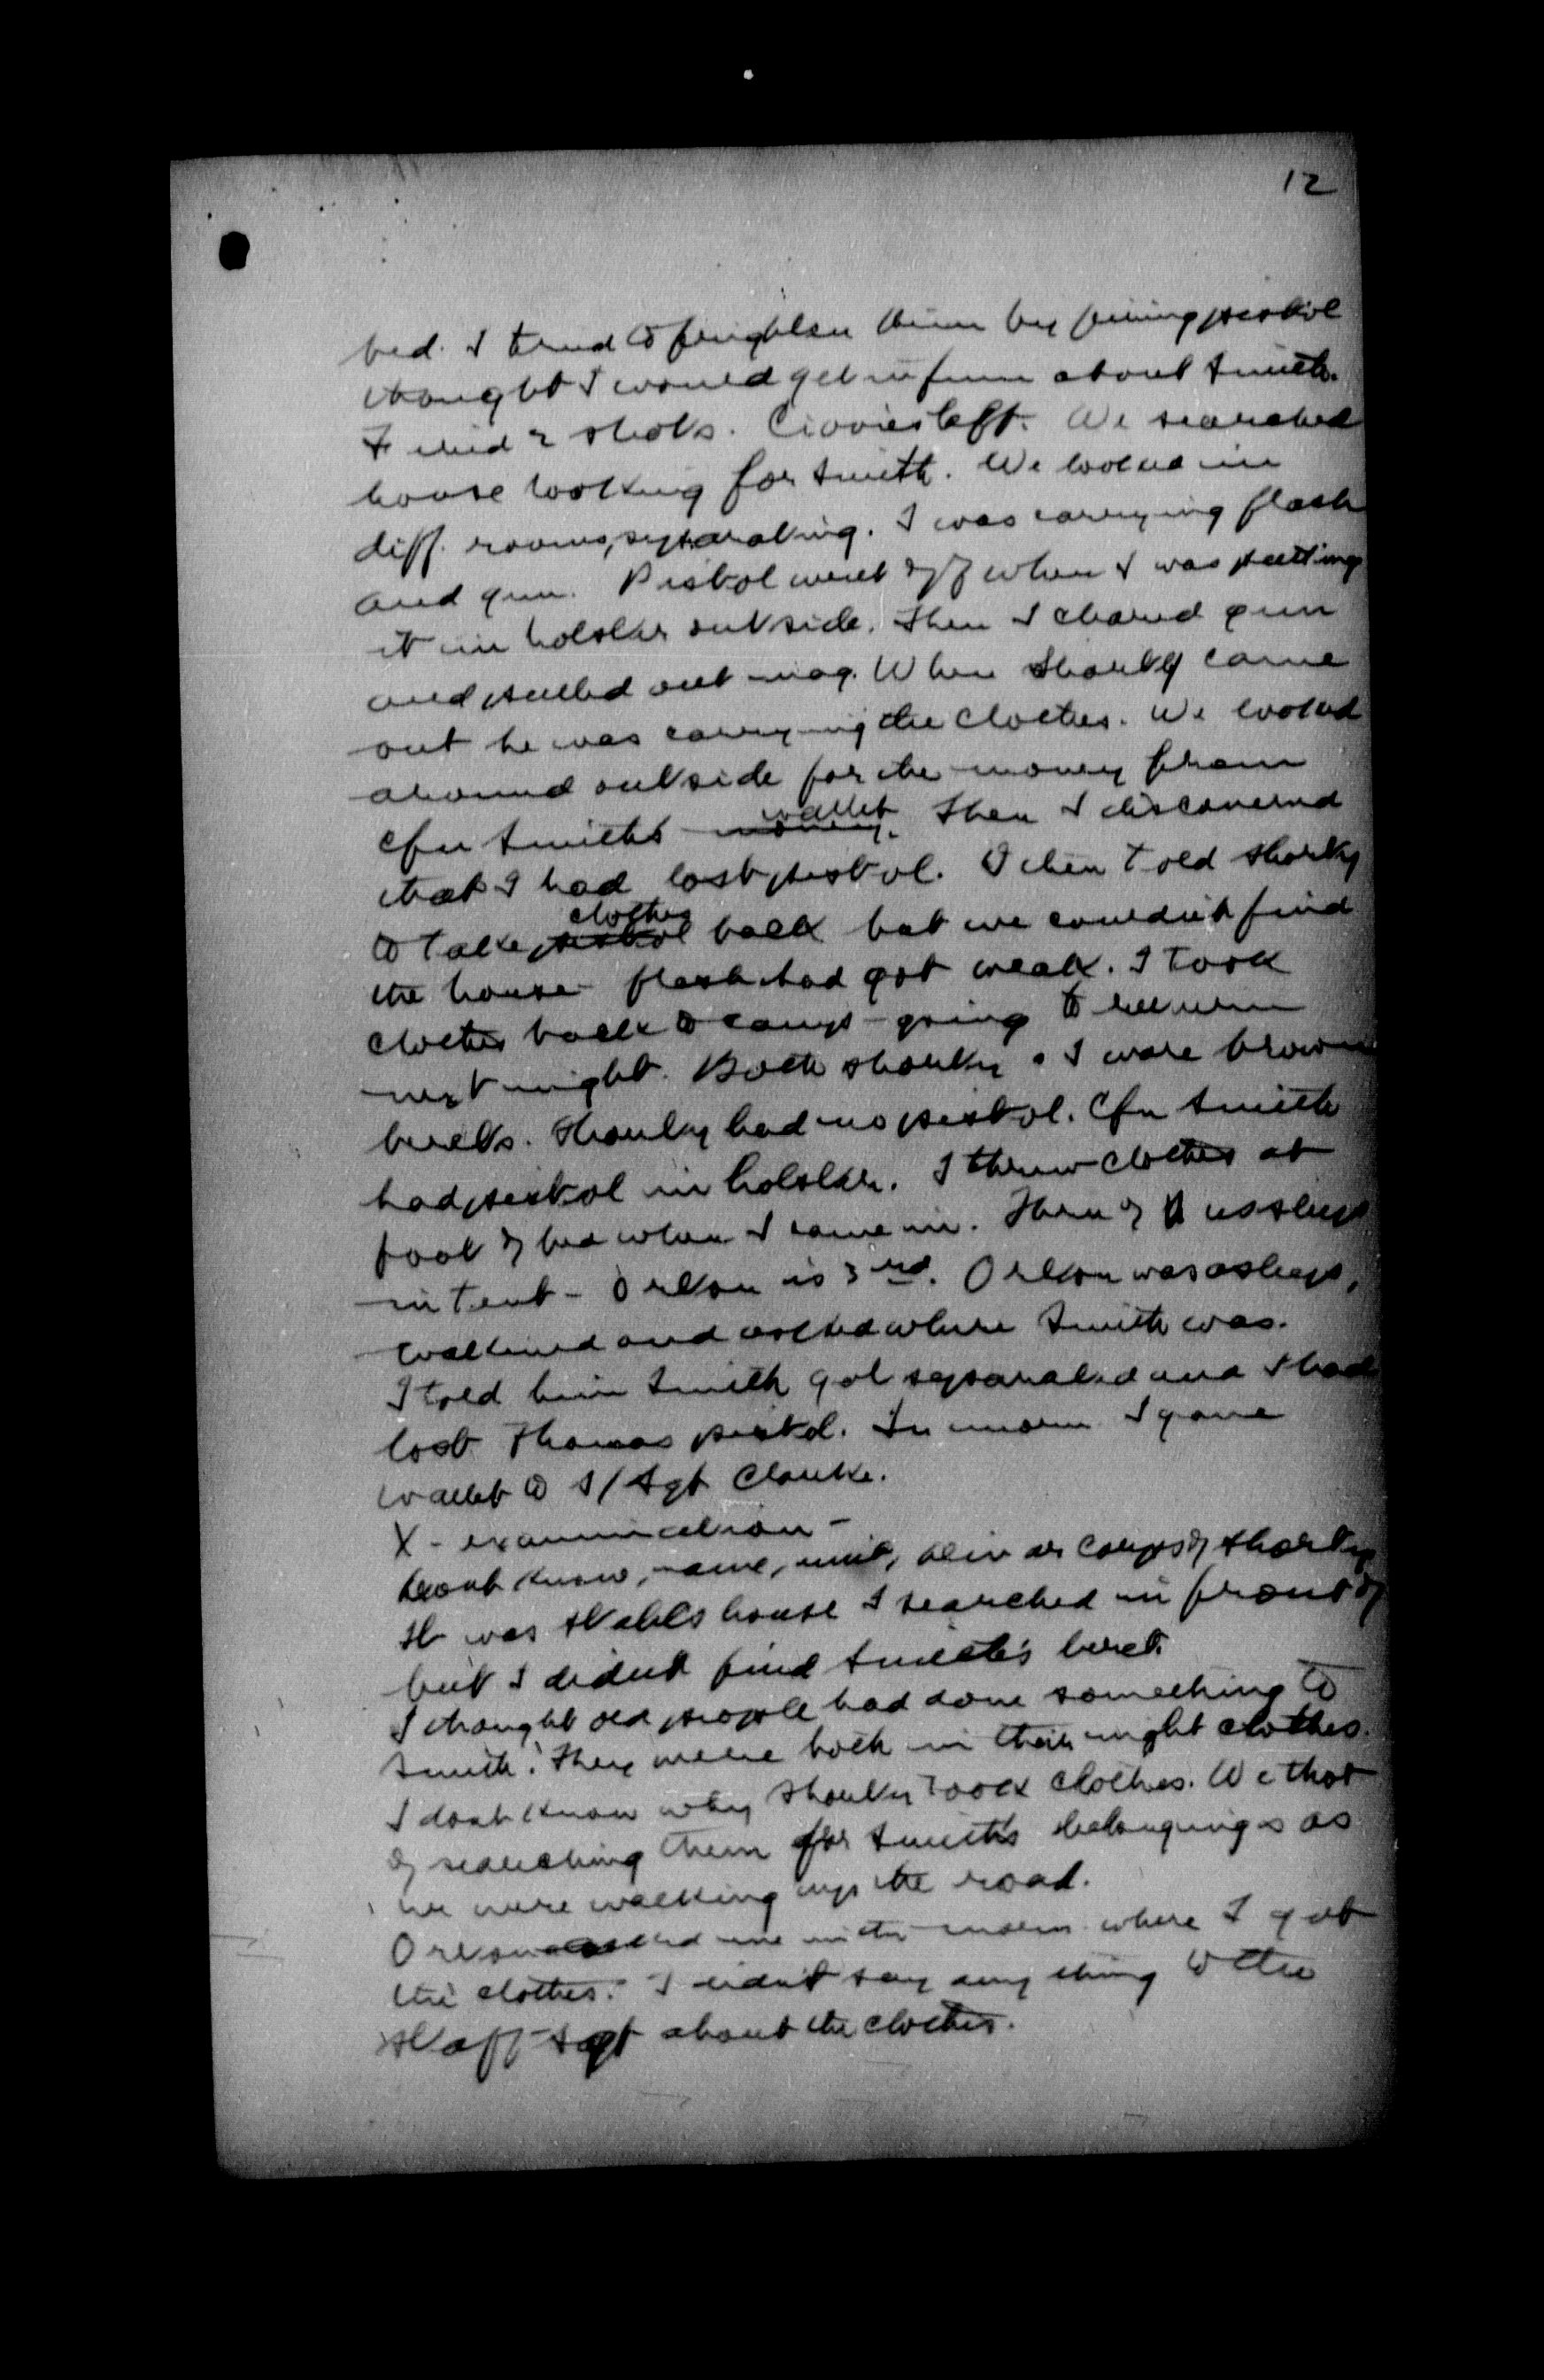 12
bed. I tried to frighten them by firing pistol
thought I would get inform about Smith.
Fired 2 shots. Civvies left. We searched
house looking for Smith. We looked in
diff. rooms, separating. I was carrying flash
and gun. Pistol went off when I was putting
it in holster outside. Then I cleared gun
and pulled out mag. When Shorty came
out he was carrying the clothes. We looked
around outside for the money from
Cfn Smith's money. wallet Then I discovered
that I had lost pistol. I then told Shorty
to take pistol clothes back but we couldn't find
the house - flash had got weak. I took
clothes back to camp - going to return
next night. Both Shorty & I wore brown
berets. Shorty had no pistol. Cfn Smith
had pistol in holster. I threw clothes at
foot of bed when I came in. Three of us sleep
in tent - Orlson is 3rd. Orlson was asleep,
wakened and asked where Smith was.
I told him Smith got separated and I had
lost Thomas pistol. In morn I gave
wallet to S/Sgt Clarke.
X - examination -
Don't know, name, unit, div or corps of Shorty
It was Stahls house I searched in front of
but I didn't find Smith's beret.
I thought old people had done something to
Smith. They were both in their night clothes.
I don't know why Shorty took clothes. We thot
of searching them for Smith's belongings as
we were walking up the road.
Orlson asked me in the morn where I got
the clothes. I didn't say any thing to the
Staff-Sgt about the clothes.